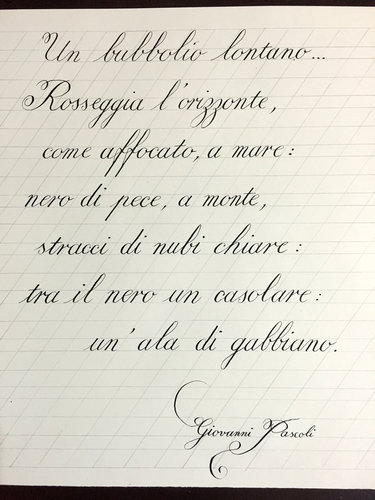 Un bubbolio lontano...
Rosseggia l'orizzonte,
come affocato, a mare:
nero di pece, a monte,
stracci di nubi chiare:
tra il nero un casolare:
un'ala di gabbiano.
Giovanni Pascoli